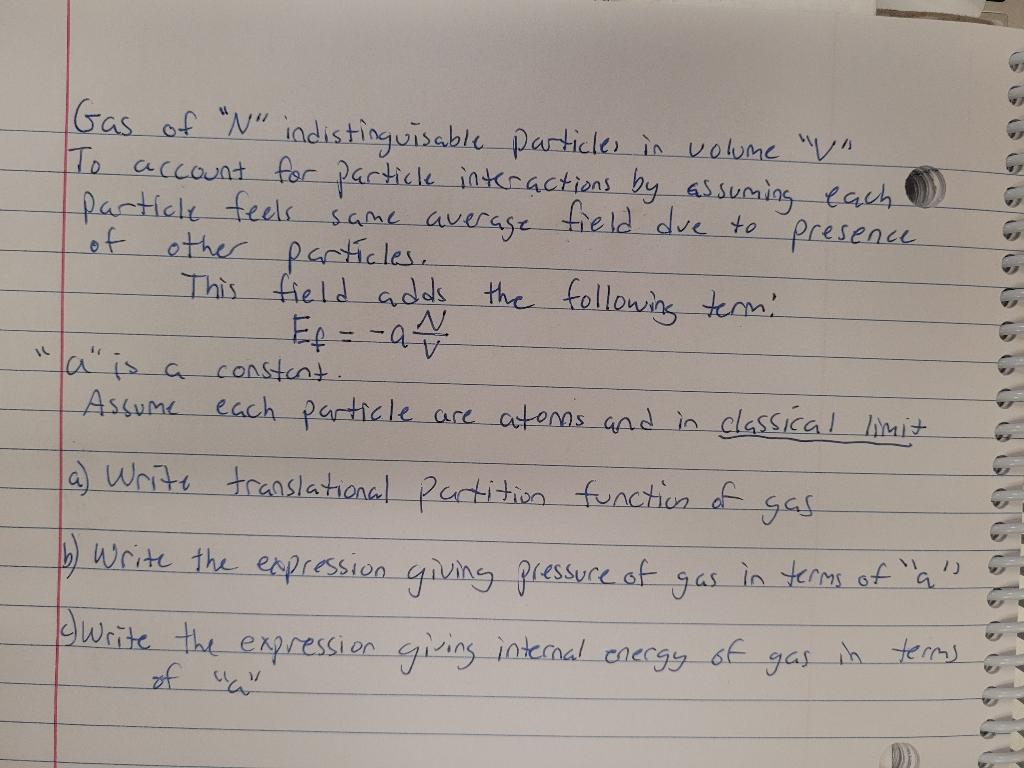 Gas of "N" indistinguisable particles in volume "V"
To account for particle interactions by assuming each
particle feels same average field due to presence
of other particles.
This field adds the following term:
E_f = -a N/V
"a" is a constant.
Assume each particle are atoms and in classical limit
a) Write translational partition function of gas
b) Write the expression giving pressure of gas in terms of "a"
c) Write the expression giving internal energy of gas in terms
of "a"